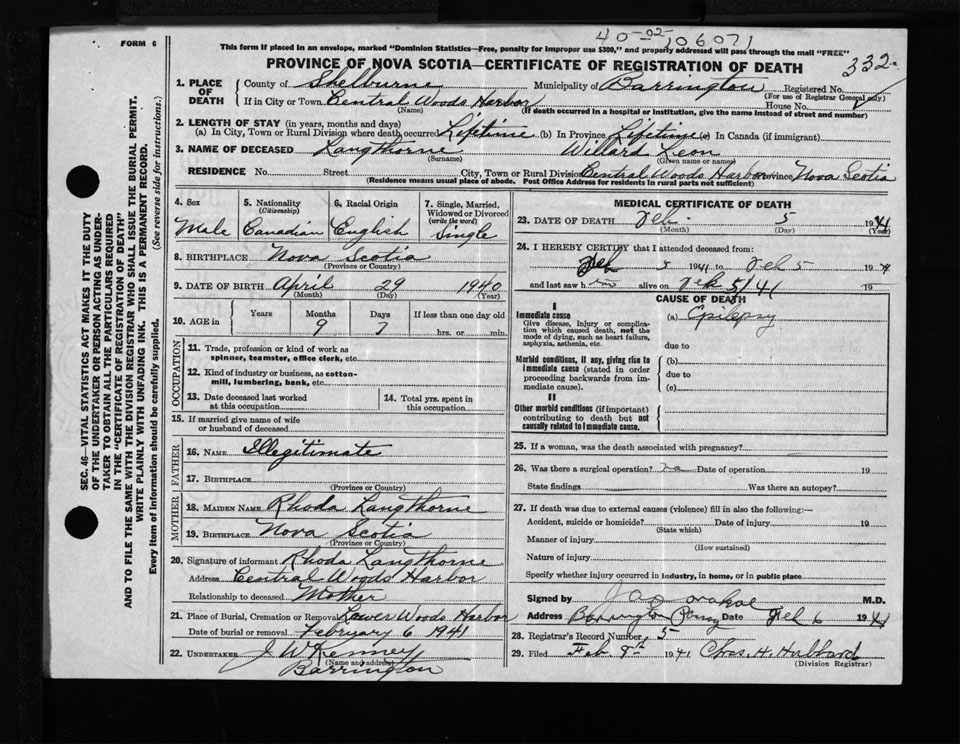 40-02-106071
FORM 6
This form if placed in an envelope, marked "Dominion Statistics—Free, penalty for improper use $300," and properly addressed will pass through the mail "FREE"
PROVINCE OF NOVA SCOTIA—CERTIFICATE OF REGISTRATION OF DEATH
332
1. PLACE OF DEATH County of Shelburne Municipality of Barrington Registered No.
(For use of Registrar General only)
If in City or Town Central Woods Harbor House No.
(Name) (If death occurred in a hospital or institution, give the name instead of street and number)
2. LENGTH OF STAY (in years, months and days)
(a) In City, Town or Rural Division where death occurred Lifetime (b) In Province Lifetime (c) In Canada (if immigrant)
3. NAME OF DECEASED Langthorne Willard Leon
(Surname) (Given name or names)
RESIDENCE No. Street City, Town or Rural Division Central Woods Harbor Province Nova Scotia
(Residence means usual place of abode. Post Office Address for residents in rural parts not sufficient)
4. Sex 5. Nationality (Citizenship) 6. Racial Origin 7. Single, Married, Widowed or Divorced (write the word)
Male Canadian English Single
8. BIRTHPLACE Nova Scotia
(Province or Country)
9. DATE OF BIRTH April 29 1940
(Month) (Day) (Year)
10. AGE in Years Months Days If less than one day old
9 7 hrs. or min.
OCCUPATION
11. Trade, profession or kind of work as spinner, teamster, office clerk, etc.
12. Kind of industry or business, as cotton-mill, lumbering, bank, etc.
13. Date deceased last worked at this occupation
14. Total yrs. spent in this occupation
15. If married give name of wife or husband of deceased
FATHER
16. NAME Illegitimate
17. BIRTHPLACE
(Province or Country)
MOTHER
18. MAIDEN NAME Rhoda Langthorne
19. BIRTHPLACE Nova Scotia
(Province or Country)
20. Signature of informant Rhoda Langthorne
Address Central Woods Harbor
Relationship to deceased Mother
21. Place of Burial, Cremation or Removal Lower Woods Harbor
Date of burial or removal February 6 1941
22. UNDERTAKER J W Kenney
(Name and address)
Barrington
MEDICAL CERTIFICATE OF DEATH
23. DATE OF DEATH Feb. 5 1941
(Month) (Day) (Year)
24. I HEREBY CERTIFY that I attended deceased from:
Feb 5 1941 to Feb 5 19
and last saw h im alive on Feb 5/41 19
CAUSE OF DEATH
I
Immediate cause (a) Epilepsy
Give disease, injury or complication which caused death, not the mode of dying, such as heart failure, asphyxia, asthenia, etc.
due to
Morbid conditions, if any, giving rise to immediate cause (stated in order proceeding backwards from immediate cause).
(b)
due to
(c)
II
Other morbid conditions (if important) contributing to death but not causally related to immediate cause.
25. If a woman, was the death associated with pregnancy?
26. Was there a surgical operation? no Date of operation 19
State findings Was there an autopsy?
27. If death was due to external causes (violence) fill in also the following:—
Accident, suicide or homicide? Date of injury 19
(State which)
Manner of injury
(How sustained)
Nature of injury
Specify whether injury occurred in industry, in home, or in public place
Signed by M.D.
Address Barrington Date Feb 6 1941
28. Registrar's Record Number 5
29. Filed Feb. 8th 1941 Chas. H. Hubbard
(Division Registrar)
SEC. 46—VITAL STATISTICS ACT MAKES IT THE DUTY
OF THE UNDERTAKER OR PERSON ACTING AS UNDER-
TAKER TO OBTAIN ALL THE PARTICULARS REQUIRED
IN THE "CERTIFICATE OF REGISTRATION OF DEATH"
AND TO FILE THE SAME WITH THE DIVISION REGISTRAR WHO SHALL ISSUE THE BURIAL PERMIT.
WRITE PLAINLY WITH UNFADING INK. THIS IS A PERMANENT RECORD.
Every item of information should be carefully supplied. (See reverse side for instructions.)